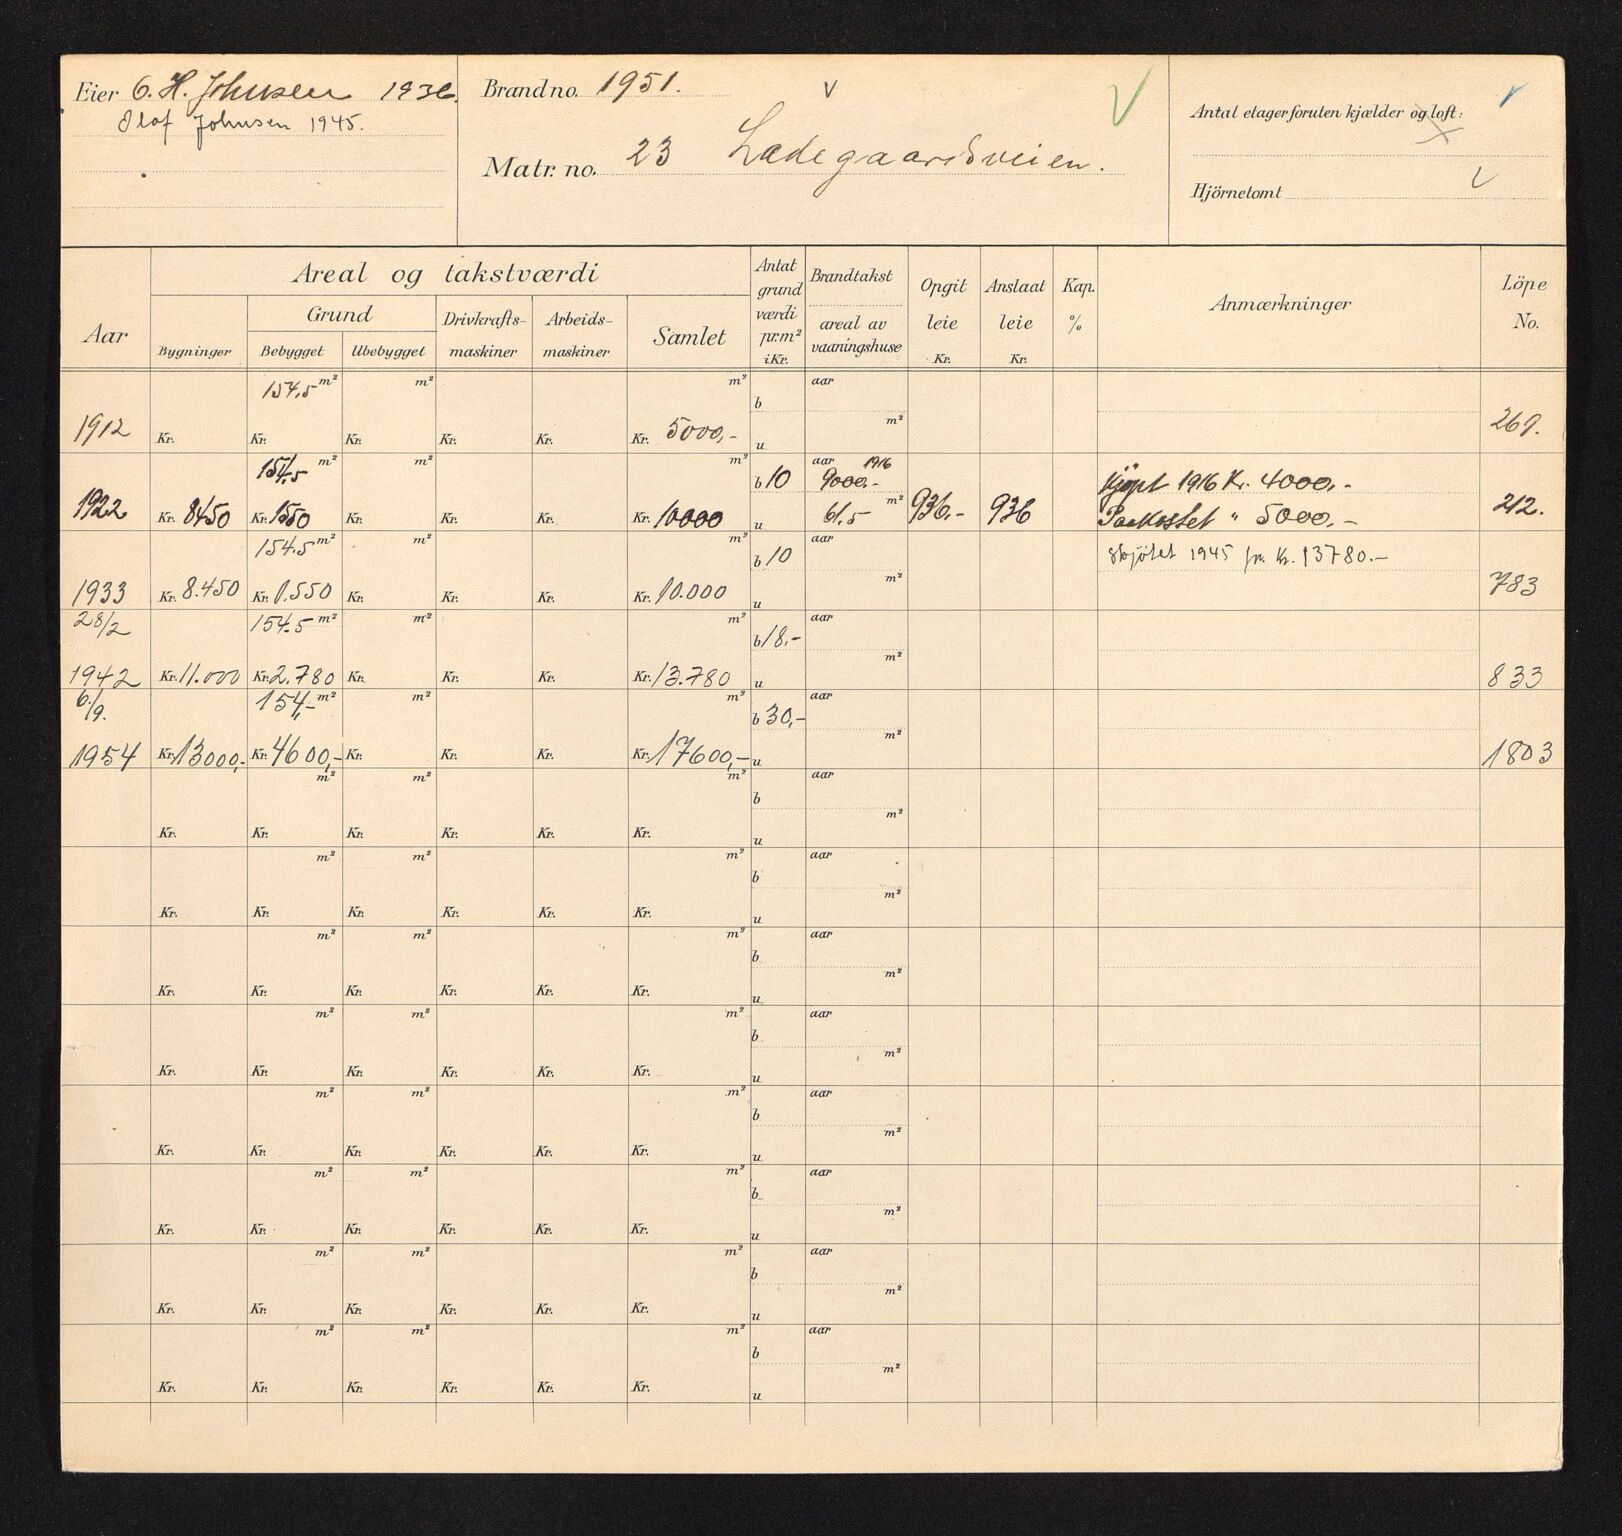 Eier O. H. Johnsen 1936.
Olaf Johnsen 1945.
Brand no. 1951.
Matr. no. 23 Ladegaardsveien.
Antal etager foruten kjælder og loft:
Hjörnetomt
Aar
Areal og takstværdi
Bygninger
Grund
Bebygget
Ubebygget
Drivkrafts-
maskiner
Arbeids-
maskiner
Samlet
Antat
grund
værdi
pr. m²
i Kr.
Brandtakst
areal av
vaaningshuse
Opgit
leie
Kr.
Anslaat
leie
Kr.
Kap.
%
Anmærkninger
Löpe
No.
154,5 m² m² m² b aar
1912 Kr. Kr. Kr. Kr. Kr. Kr. 5000,- u m² 269.
154,5 m² m² m² b 10 aar 1916 9000.- Kjöpt 1916 Kr. 4000,-
1922 Kr. 8450 Kr. 1550 Kr. Kr. Kr. Kr. 10000 u 61,5 m² 936,- 936 Paakostet " 5000,- 212.
154.5 m² m² m² b 10 aar Skjötet 1945 for Kr. 13780.-
1933 Kr. 8.450 Kr. 1.550 Kr. Kr. Kr. Kr. 10.000 u m² 783
28/2 154.5 m² m² m² b 18.- aar
1942 Kr. 11.000 Kr. 2.780 Kr. Kr. Kr. Kr. 13.780 u m² 833
6/9. 154,- m² m² m² b 30,- aar
1954 Kr. 13000,- Kr. 4600,- Kr. Kr. Kr. Kr. 17600,- u m² 1803
m² m² m² b aar
Kr. Kr. Kr. Kr. Kr. Kr. u m²
m² m² m² b aar
Kr. Kr. Kr. Kr. Kr. Kr. u m²
m² m² m² b aar
Kr. Kr. Kr. Kr. Kr. Kr. u m²
m² m² m² b aar
Kr. Kr. Kr. Kr. Kr. Kr. u m²
m² m² m² b aar
Kr. Kr. Kr. Kr. Kr. Kr. u m²
m² m² m² b aar
Kr. Kr. Kr. Kr. Kr. Kr. u m²
m² m² m² b aar
Kr. Kr. Kr. Kr. Kr. Kr. u m²
m² m² m² b aar
Kr. Kr. Kr. Kr. Kr. Kr. u m²